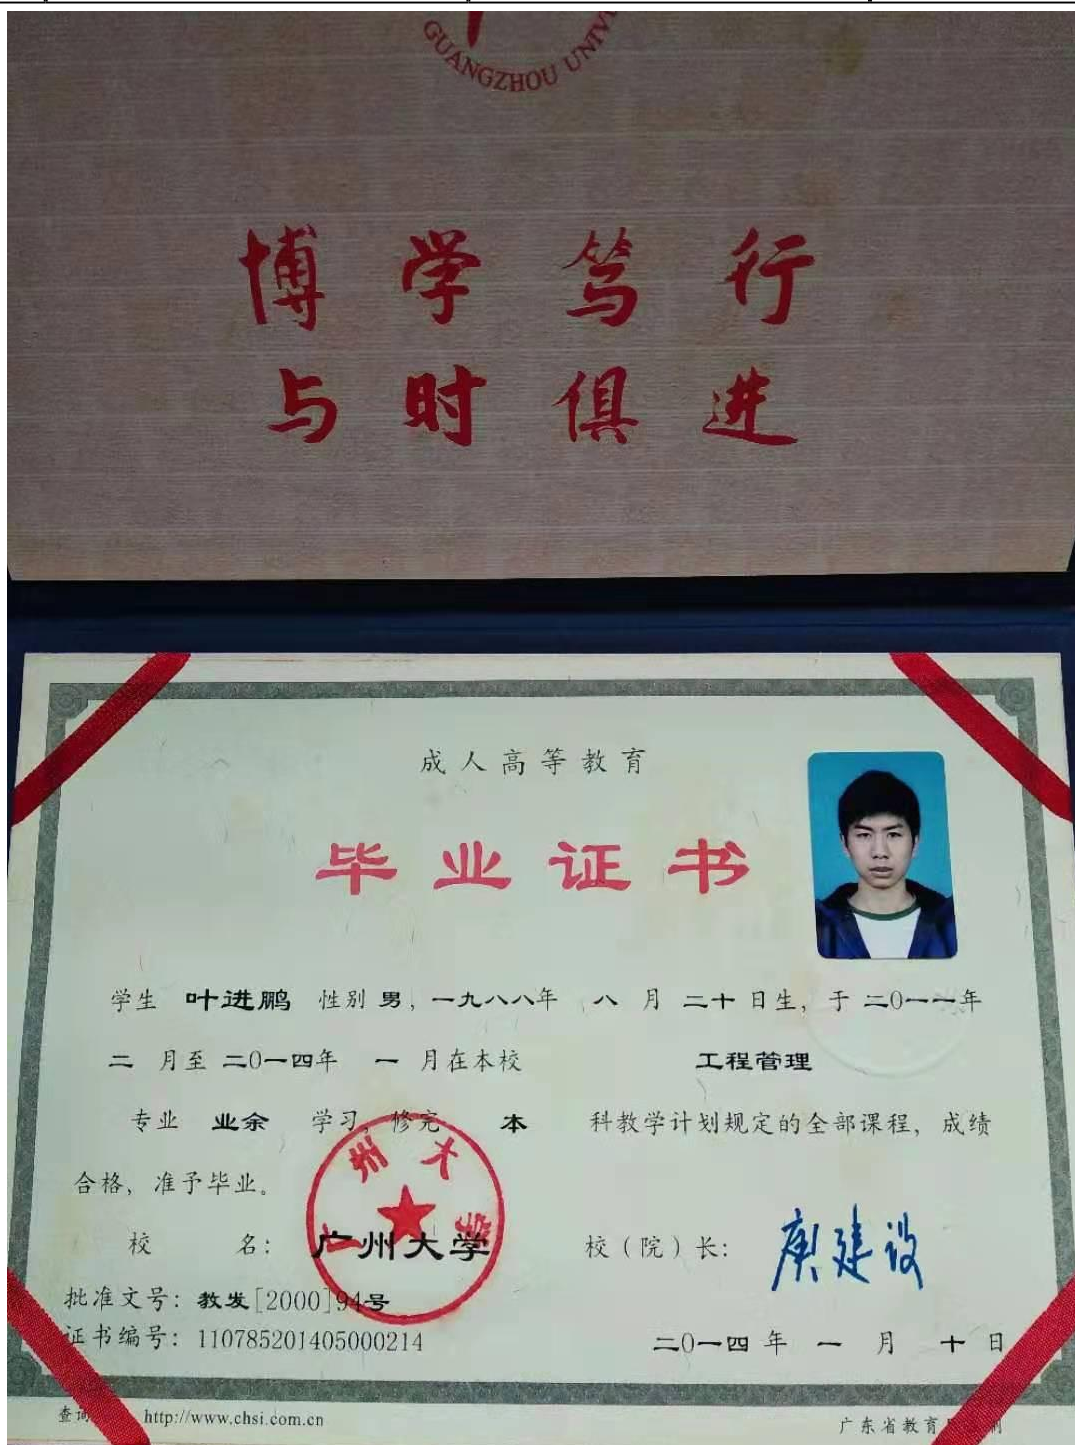 GUANGZHOU UNIV
博学笃行
与时俱进
成人高等教育
毕业证书
学生 叶进鹏 性别 男，一九八八年 八 月 二十 日生，于 二〇一一年
二 月至 二〇一四年 一 月在本校 工程管理
专业 业余 学习，修完 本 科教学计划规定的全部课程，成绩
合格，准予毕业。
州大学
校 名：广州大学 校（院）长：庾建设
批准文号：教发[2000]94号
证书编号：110785201405000214 二〇一四 年 一 月 十 日
查询 http://www.chsi.com.cn 广东省教育